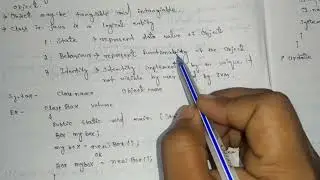 • Object may be tangible and intangible.
• Class in java is a logical entity
1. State → represent data value of Object
2. Behaviour → represent functionality of the Object
3. Identity → Identity implement unique it
not visible by user by JVM.
Syntax - Class name Object name
Ex - Class Box volume
{
Public static void main (
Box my box;
my box = new Box();
OR
Box mybox = new Box();